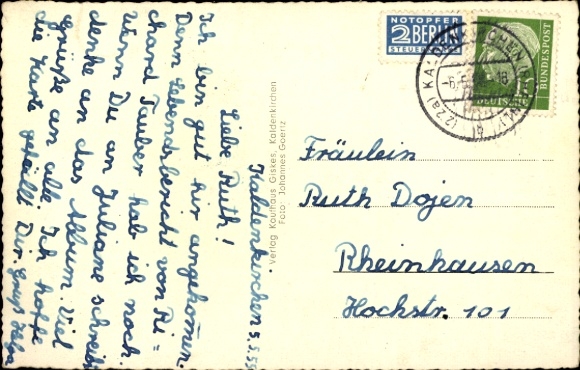 Kaldenkirchen 5.5.55
Liebe Ruth!
Ich bin gut hir angekommen.
Denn Lebensbericht von Ri=
chard Tauber hab ich noch.
Wenn Du an Juliane schreibst
denke an das Album. Viel
Grüße an alle. Ich hoffe
die Karte gefällt Dir. Gruß Helga
Verlag Kaufhaus Giskes, Kaldenkirchen
Foto: Johannes Goertz
NOTOPFER
2 BERLIN
STEUERMARKE
DEUTSCHE
BUNDESPOST
(22a) KALDENKIRCHEN
Fräulein
Ruth Dojen
Rheinhausen
Hochstr. 101